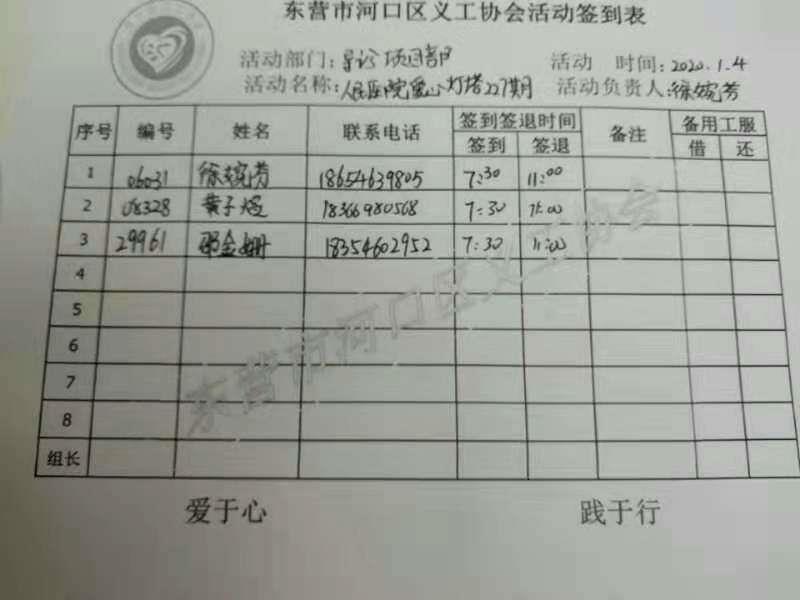 东营市河口区义工协会活动签到表
活动部门：导诊项目部 活动 时间：2020.1.4
活动名称：人民医院爱心灯塔227期 活动负责人：徐婉芳
序号 编号 姓名 联系电话 签到签退时间 备注 备用工服
签到 签退 借 还
1 06031 徐婉芳 18654639805 7:30 11:00
2 08328 黄子煜 18366980568 7:30 11:00
3 29961 邵金姗 18354602952 7:30 11:00
4
5
6
7
8
组长
东营市河口区义工协会
爱于心 践于行